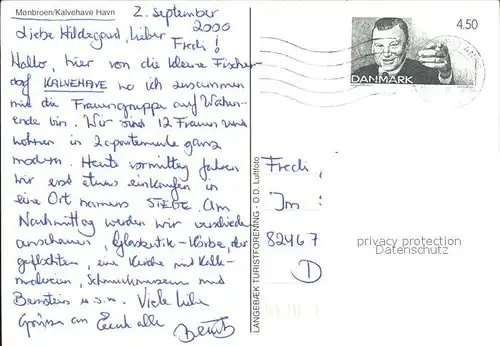 Mønbroen/Kalvehave Havn
2. September
2000
Liebe Hildegard, lieber
Fredi !
Hallo, hier von die kleine Fischer-
dorf KALVEHAVE wo ich zusammen
mit die Frauengruppe auf Wochen-
ende bin. Wir sind 12 Frauen und
wohnen in 2 apartements ganz
modern. Heute vormittag fahren
wir erst etwas einkaufen in
eine Ort namens STEGE. Am
Nachmittag werden wir verschiede
anschauen, Glasbutik - Körbe, der
geflochten, eine Kirche mit Kalk-
malereien, Schmuckmuseum und
Bernstein u.s.w. Viele liebe
Grüsse an Euch alle
LANGEBÆK TURISTFORENING - O.D. Luftfoto
4.50
DANMARK
Fredi
Im
82467
D
privacy protection
Datenschutz